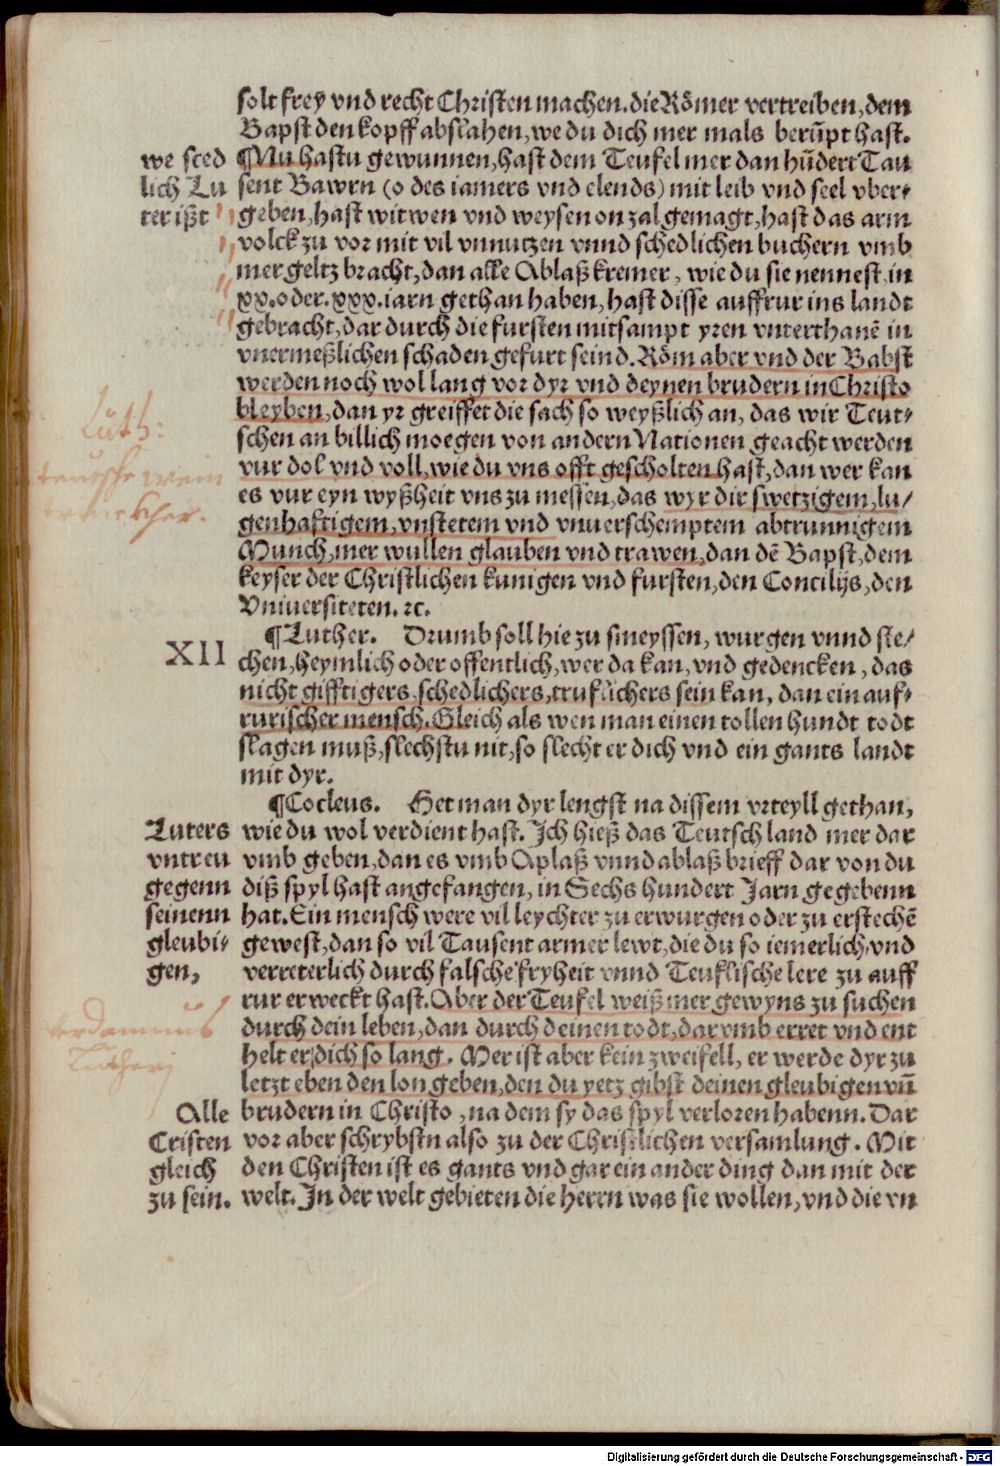 solt frey vnd recht Christen machen. die Römer vertreiben, dem
Bapst den kopff abslahen, we du dich mer mals berūpt hast.
we sced
lich Lu
ter ißt
¶Nu hastu gewunnen, hast dem Teufel mer dan hūdert Tau
sent Bawrn (o des iamers vnd elends) mit leib vnd seel vber⸗
geben, hast witwen vnd weysen on zal gemagt, hast das arm
volck zu vor mit vil vnnutzen vnnd schedlichen buchern vmb
mer geltz bracht, dan alle Ablaß kremer, wie du sie nennest, in
xx. oder. xxx. iarn gethan haben, hast disse auffrur ins landt
gebracht, dar durch die fursten mitsampt yren vnterthanē in
vnermeßlichen schaden gefurt seind. Röm aber vnd der Babst
werden noch wol lang vor dyr vnd deynen brudern in Christo
bleyben, dan yr greiffet die sach so weyßlich an, das wir Teut⸗
schen an billich moegen von andern Nationen geacht werden
vur dol vnd voll, wie du vns offt gescholten hast, dan wer kan
es vur eyn wyßheit vns zu messen, das wyr dir swetzigem, lu/
genhafftigem, vnstetem vnd vnuerschemptem abtrunnigem
Munch, mer wullen glauben vnd trawen, dan dē Bapst, dem
keyser der Christlichen kunigen vnd fursten, den Concilijs, den
Vniuersiteten. ꝛc.
Luth:
teutsche wein
trinckher.
XII
¶Luther. Drumb soll hie zu smeyssen, wurgen vnnd ste/
chen, heymlich oder offentlich, wer da kan, vnd gedencken, das
nicht gifftigers, schedlichers, teuflichers sein kan, dan ein auf⸗
rurischer mensch. Gleich als wen man einen tollen hundt todt
slagen muß, slechstu nit, so slecht er dich vnd ein gants landt
mit dyr.
¶Cocleus. Het man dyr lengst na dissem vrteyll gethan,
wie du wol verdient hast. Jch hieß das Teutsch land mer dar
vmb geben, dan es vmb Aplaß vnnd ablaß brieff dar von du
diß spyl hast angefangen, in Sechs hundert Jarn gegebenn
hat. Ein mensch were vil leychter zu erwurgen oder zu erstechē
gewest, dan so vil Tausent armer lewt, die du so iemerlich, vnd
verreterlich durch falsche fryheit vnnd Teuflische lere zu auff
rur erweckt hast. Aber der Teufel weiß mer gewyns zu suchen
durch dein leben, dan durch deinen todt, darvmb erret vnd ent
helt er dich so lang. Mer ist aber kein zweifell, er werde dyr zu
letzt eben den lon geben, den du yetz gibst deinen gleubigen vñ
brudern in Christo, na dem sy das spyl verloren habenn. Dar
vor aber schrybstn also zu der Christlichen versamlung. Mit
den Christen ist es gants vnd gar ein ander ding dan mit der
welt. Jn der welt gebieten die herrn was sie wollen, vnd die vn
Luters
vntreu
gegenn
seinenn
gleubi⸗
gen,
Lutherj
Alle
Cristen
gleich
zu sein.
Digitalisierung gefördert durch die Deutsche Forschungsgemeinschaft - DFG